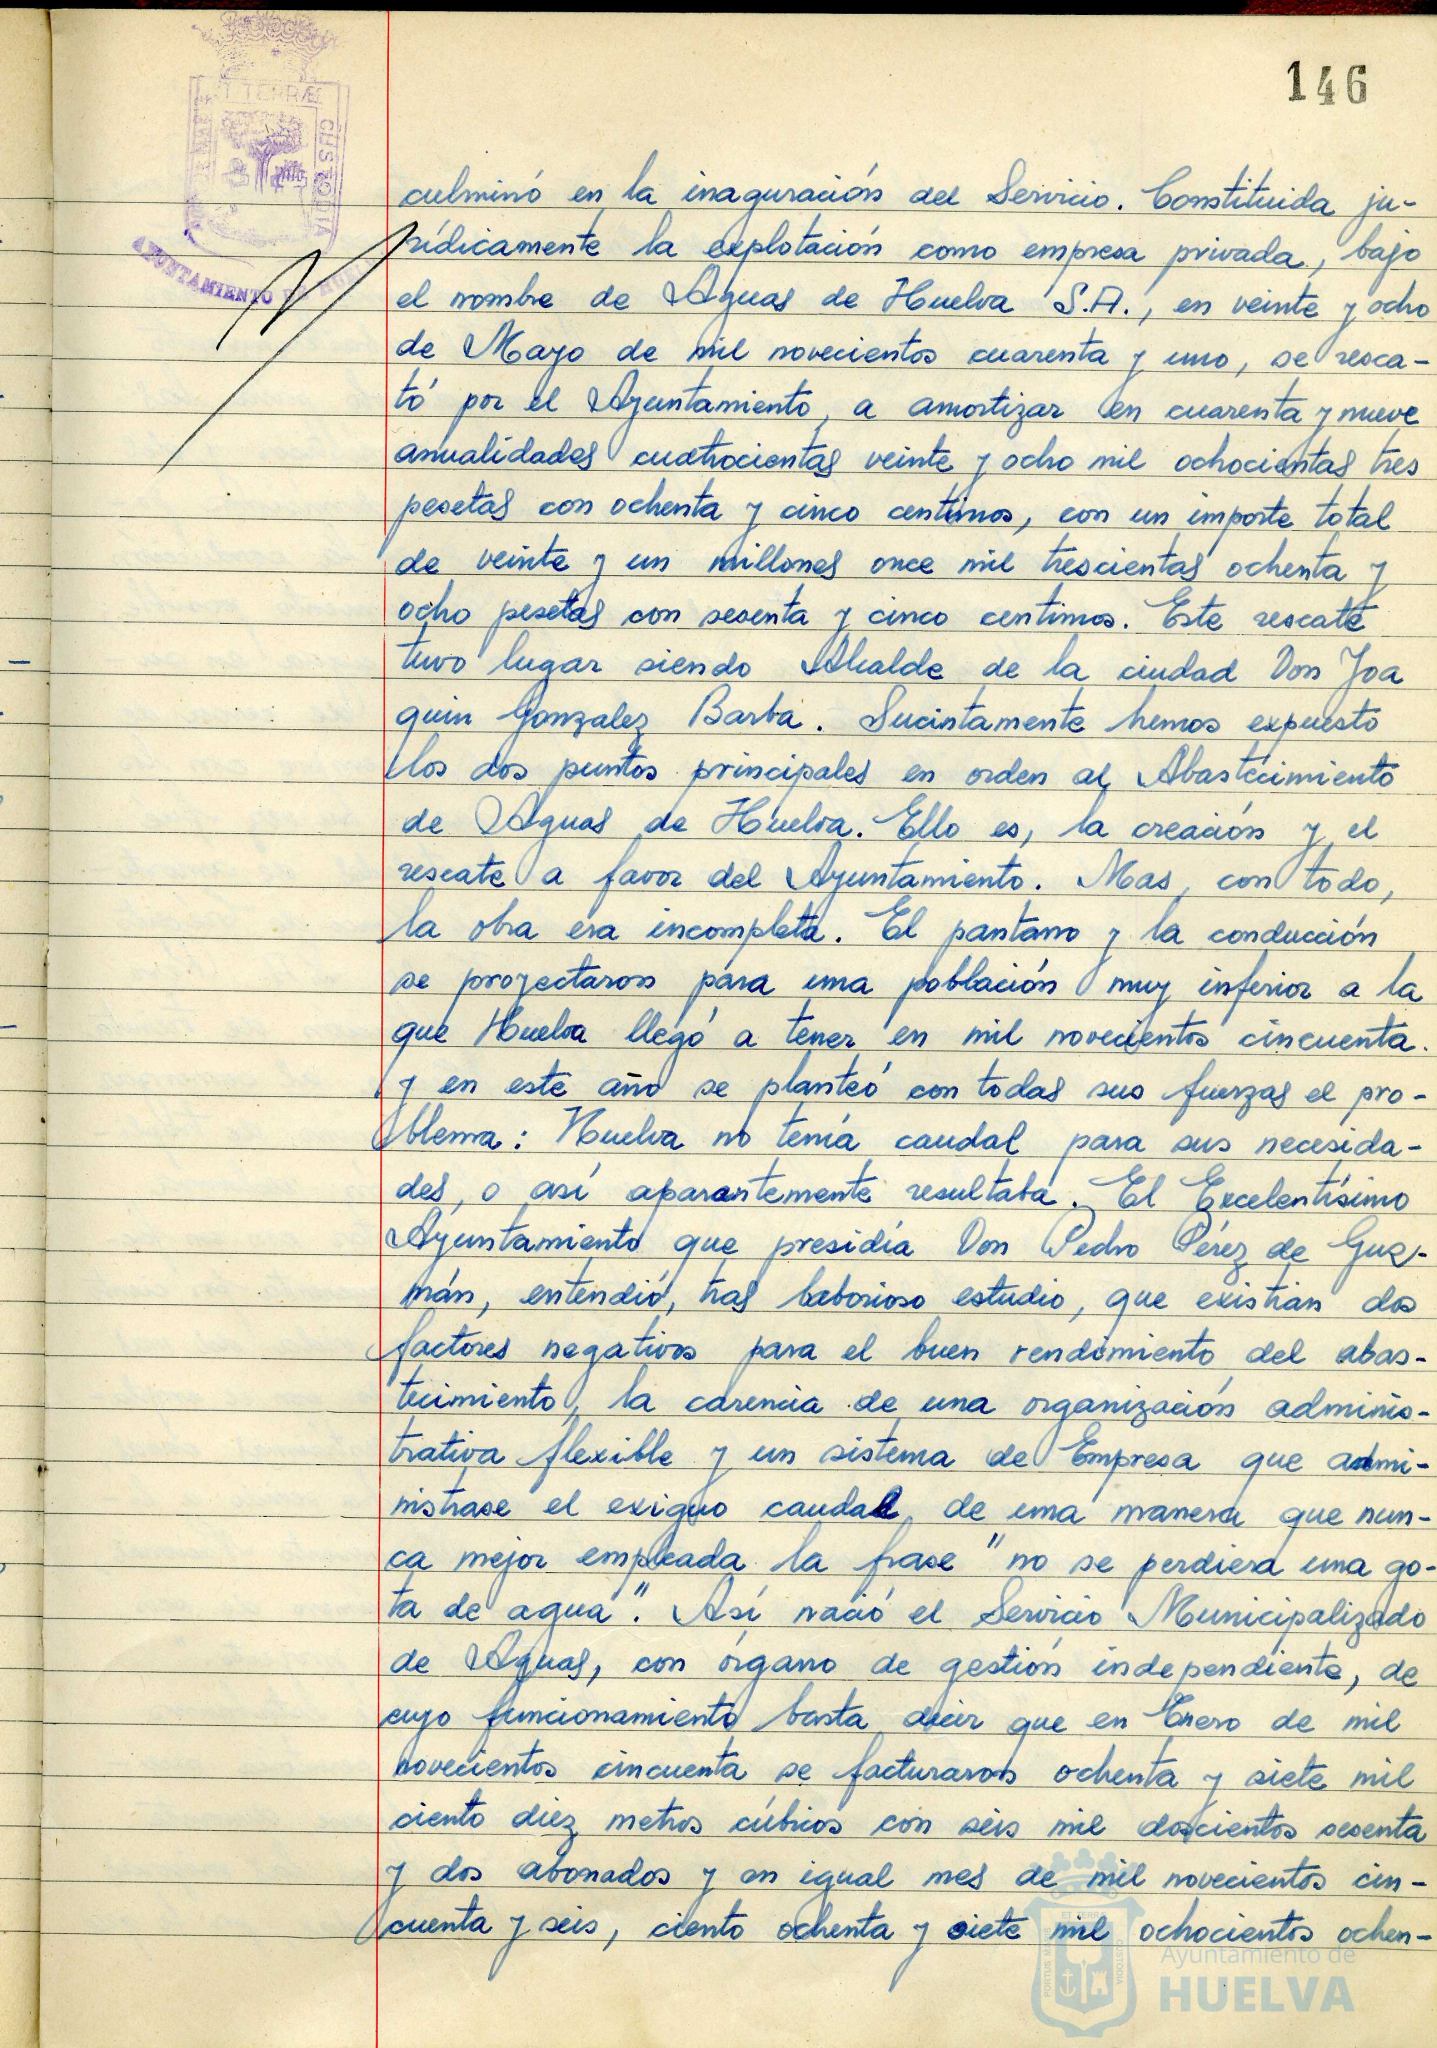 146
ET TERRÆ
CUSTODIA
AYUNTAMIENTO DE HUELVA
culminó en la inaguración del Servicio. Constituida ju-
rídicamente la explotación como empresa privada, bajo
el nombre de Aguas de Huelva S.A., en veinte y ocho
de Mayo de mil novecientos cuarenta y uno, se resca-
tó por el Ayuntamiento, a amortizar en cuarenta y nueve
anualidades cuatrocientas veinte y ocho mil ochocientas tres
pesetas con ochenta y cinco centimos, con un importe total
de veinte y un millones once mil trescientas ochenta y
ocho pesetas con sesenta y cinco centimos. Este rescate
tuvo lugar siendo Alcalde de la ciudad Don Joa
quin Gonzalez Barba. Sucintamente hemos expuesto
los dos puntos principales en orden al Abastecimiento
de Aguas de Huelva. Ello es, la creación y el
rescate a favor del Ayuntamiento. Mas, con todo,
la obra era incompleta. El pantano y la conducción
se proyectaron para una población muy inferior a la
que Huelva llegó a tener en mil novecientos cincuenta.
y en este año se planteó con todas sus fuerzas el pro-
blema: Huelva no tenía caudal para sus necesida-
des, o así aparantemente resultaba. El Excelentísimo
Ayuntamiento que presidía Don Pedro Pérez de Guz-
mán, entendió, tras laborioso estudio, que existían dos
factores negativos para el buen rendimiento del abas-
tecimiento, la carencia de una organización adminis-
trativa flexible y un sistema de Empresa que admi-
nistrase el exiguo caudal de una manera que nun-
ca mejor empleada la frase "no se perdiera una go-
ta de agua". Así nació el Servicio Municipalizado
de Aguas, con órgano de gestión independiente, de
cuyo funcionamiento basta decir que en Enero de mil
novecientos cincuenta se facturaron ochenta y siete mil
ciento diez metros cúbicos con seis mil doscientos sesenta
y dos abonados y en igual mes de mil novecientos cin-
cuenta y seis, ciento ochenta y siete mil ochocientos ochen-
PORTUS MARIS
ET TERRÆ
CUSTODIA
Ayuntamiento de
HUELVA